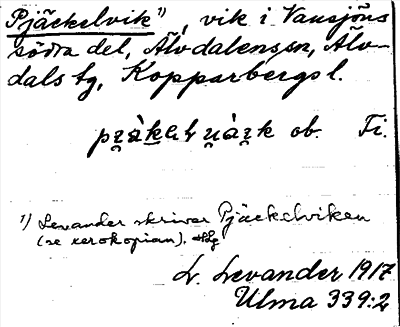 Pjäckelvik¹⁾, vik i Vansjöns
södra del, Älvdalens sn, Älv-
dals tg, Kopparbergs l.
ob. Fi.
¹⁾ Levander skriver Pjäckelviken
(se xerokopian).
L. Levander 1917
Ulma 339:2